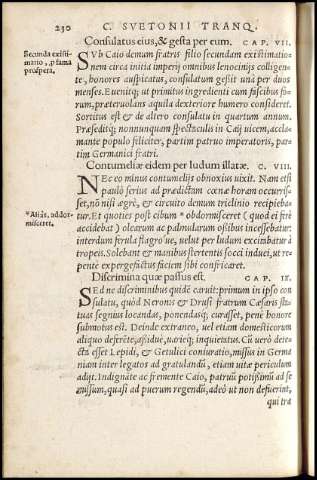 230 C. SVETONII TRANQ.
Consulatus eius, & gesta per eum. CAP. VII.
Secunda existi-
matio, ꝓ fama
prospera.
SVb Caio demum fratris filio secundam existimatio-
nem circa initia imperij omnibus lenocinijs colligen-
te, honores auspicatus, consulatum gessit una per duos
menses. Euenitq; ut primitus ingredienti cum fascibus fo-
rum, præteruolans aquila dexteriore humero consideret.
Sortitus est & de altero consulatu in quartum annum.
Præseditq; nonnunquam spectaculis in Caij uicem, accla-
mante populo feliciter, partim patruo imperatoris, par-
tim Germanici fratri.
Contumeliæ eidem per ludum illatæ. C. VIII.
NEc eo minus contumelijs obnoxius uixit. Nam etsi
paulò serius ad prædictam cœnæ horam occurris-
set, nõ nisi ægrè, & circuito demum triclinio recipieba-
tur. Et quoties post cibum * obdormisceret (quod ei ferè
*Aliâs, addor-
misceret.
accidebat) olearum ac palmularum ossibus incessebatur:
interdum ferula flagro´ue, uelut per ludum excimbatur à
tropeis. Solebant & manibus stertentis socci indui, ut re-
pente expergefactus faciem sibi confricaret.
Discrimina quæ passus est. CAP. IX.
SEd ne discriminibus quidē caruit: primum in ipso con
sulatu, quòd Neronis & Drusi fratrum Cæsaris sta-
tuas segnius locandas, ponendasq; curasset, penè honore
submotus est. Deinde extraneo, uel etiam domesticorum
aliquo deferēte, assiduè, uarieq; inquietatus. Cũ uerò dete-
cta esset Lepidi, & Getulici coniuratio, missus in Germa
niam inter legatos ad gratulandũ, etiam uitæ periculum
adijt. Indignāte ac fremente Caio, patruũ potißimũ ad se
missum, quasi ad puerum regendũ, adeò ut non defuerint,
qui tra